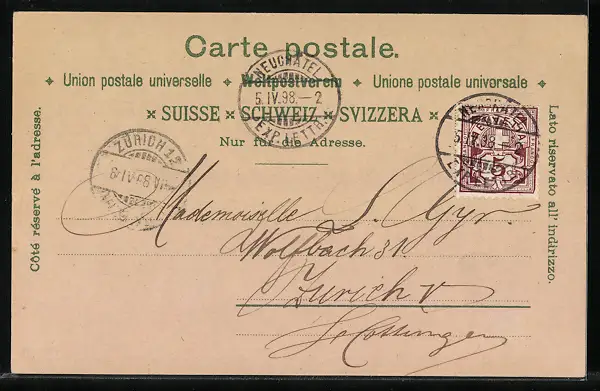 Carte postale.
Union postale universelle Weltpostverein Unione postale universale
SUISSE SCHWEIZ SVIZZERA
Nur für die Adresse.
Côté réservé à l'adresse.
Lato riservato all' indirizzo.
NEUCHATEL
5.IV.98.–2
EXP. LETTR.
ZÜRICH 12
6.IV.98
5
Mademoiselle S. Gyr.
Wolfbach 31.
Zurich V
Hottingen